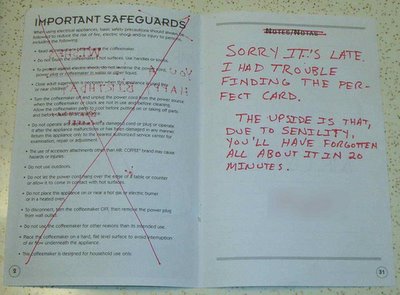 IMPORTANT SAFEGUARDS
When using electrical appliances, basic safety precautions should always be
followed to reduce the risk of fire, electric shock and/or injury to persons
including the following:
• Read all instructions before using the coffeemaker.
• Do not touch the coffeemaker's hot surfaces. Use handles or knobs.
• To protect against electric shock, do not immerse the power cord,
power plug or coffeemaker in water or other liquid.
• Close adult supervision is necessary when this appliance is used by
or near children.
• Turn the coffeemaker off and unplug the power cord from the power source
when the coffeemaker or clock are not in use and before cleaning.
Allow the coffeemaker parts to cool before putting on or taking off parts
and before cleaning the appliance.
• Do not operate any appliance with a damaged cord or plug or operate
it after the appliance malfunctions or has been damaged in any manner.
Return this appliance only to the nearest authorized service center for
examination, repair or adjustment.
• The use of accessory attachments other than MR. COFFEE® brand may cause
hazards or injuries.
• Do not use outdoors.
• Do not let the power cord hang over the edge of a table or counter
or allow it to come in contact with hot surfaces.
• Do not place this appliance on or near a hot gas or electric burner
or in a heated oven.
• To disconnect, turn the coffeemaker OFF, then remove the power plug
from wall outlet.
• Do not use the coffeemaker for other reasons than its intended use.
• Place the coffeemaker on a hard, flat level surface to avoid interruption
of air flow underneath the appliance.
• The coffeemaker is designed for household use only.
2
Notes/Notas
SORRY IT'S LATE.
I HAD TROUBLE
FINDING THE PER-
FECT CARD.
THE UPSIDE IS THAT,
DUE TO SENILITY,
YOU'LL HAVE FORGOTTEN
ALL ABOUT IT IN 20
MINUTES.
31